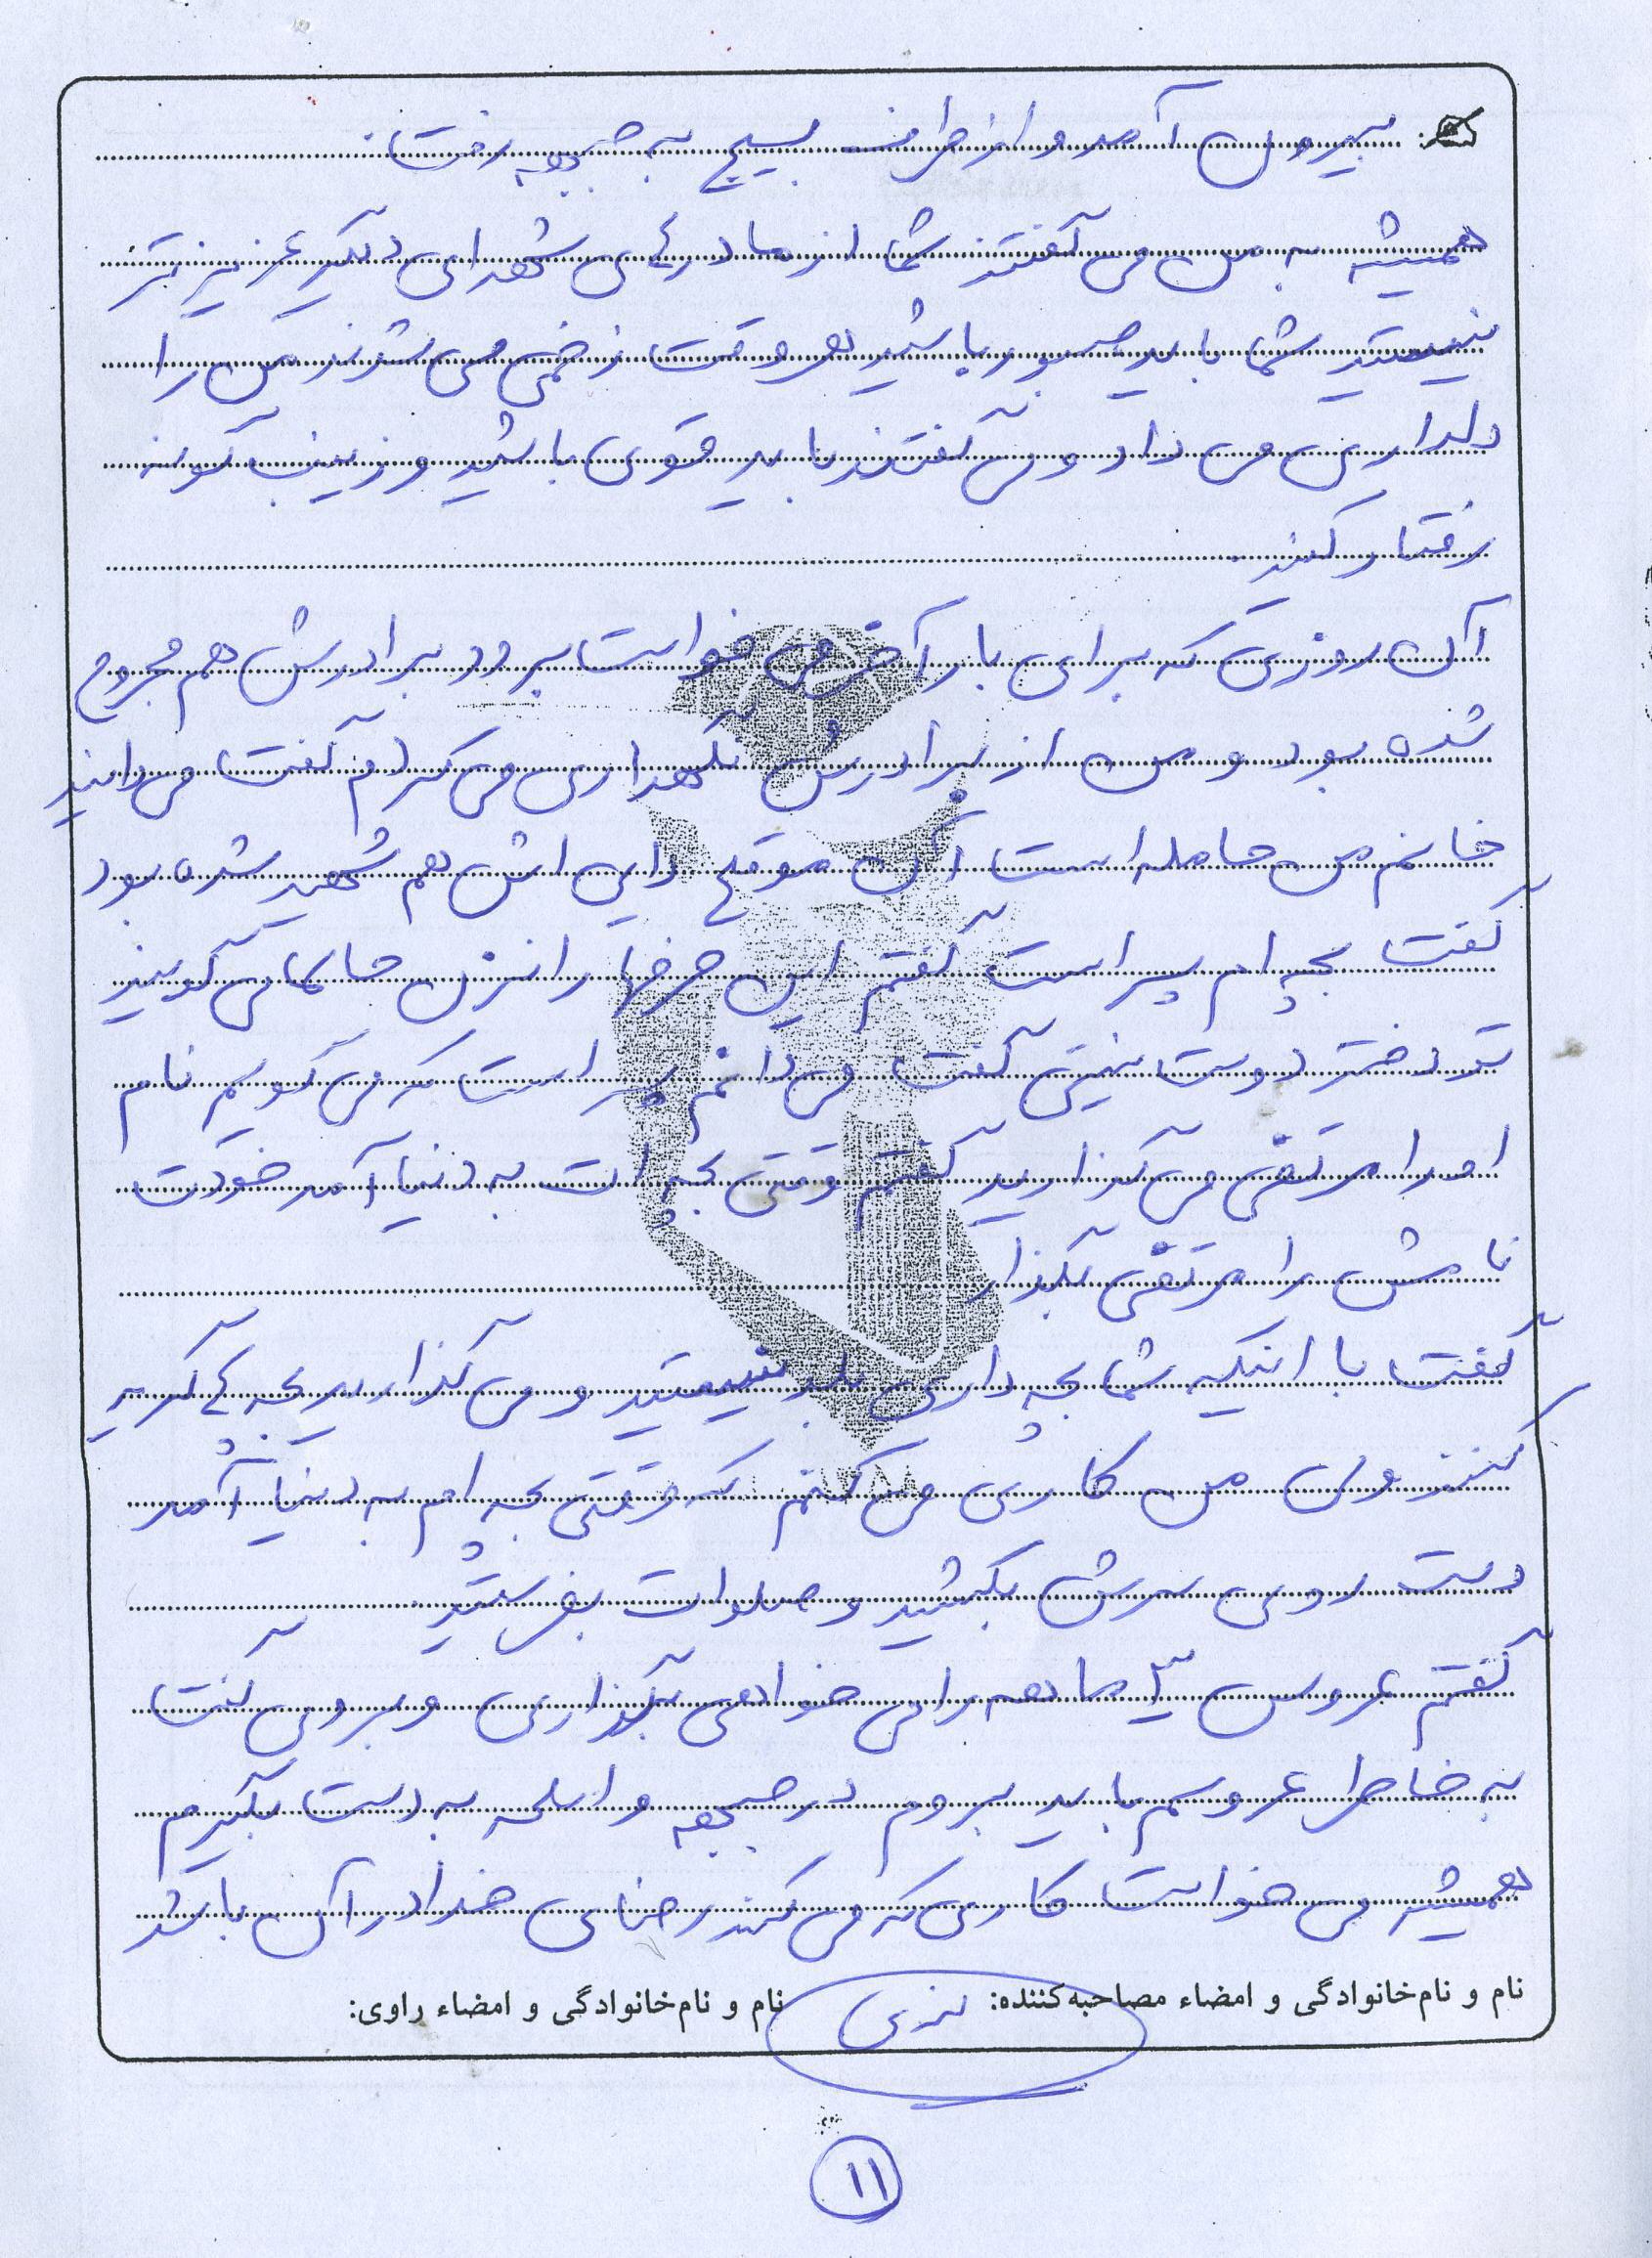 بیرون آمد و از طرف بسیج به جبهه رفت.
همیشه به من می گفتند شما از مادرهای شهدای دیگر عزیزتر
نیستید شما باید صبور باشید هر وقت زخمی می شدند من را
دلداری می داد و می گفتند باید قوی باشید و زینب گونه
رفتار کنید
آن روزی که برای بار آخر می خواست برود برادرش هم مجروح
شده بود و من از برادرش نگهداری می کردم گفت می دانید
خانم من حامله است آن موقع دایی اش هم شهید شده بود
گفت بچه ام پسر است گفتم این حرفها را نزن حالا می گویند
تو دختر دوست نیستی گفت می دانم پسر است که می گویم نام
او را مرتضی می گذارید گفتم وقتی بچه ات به دنیا آمد خودت
نامش را مرتضی بگذار
گفت با اینکه شما بچه داری بلد نیستید و می گذارید بچه ها گریه
کنند ولی من کاری می کنم که وقتی بچه ام به دنیا آمد
دست روی سرش بکشید و صلوات بفرستید
گفتم عروس ۳ ماهه را می خواهی بگذاری و بروی گفت
به خاطر عروسم باید بروم در جبهه و اسلحه به دست بگیرم
همیشه می خواست کاری که می کند رضای خدا در آن باشد
نام و نام‌خانوادگی و امضاء مصاحبه‌کننده: نام و نام‌خانوادگی و امضاء راوی:
۱۱